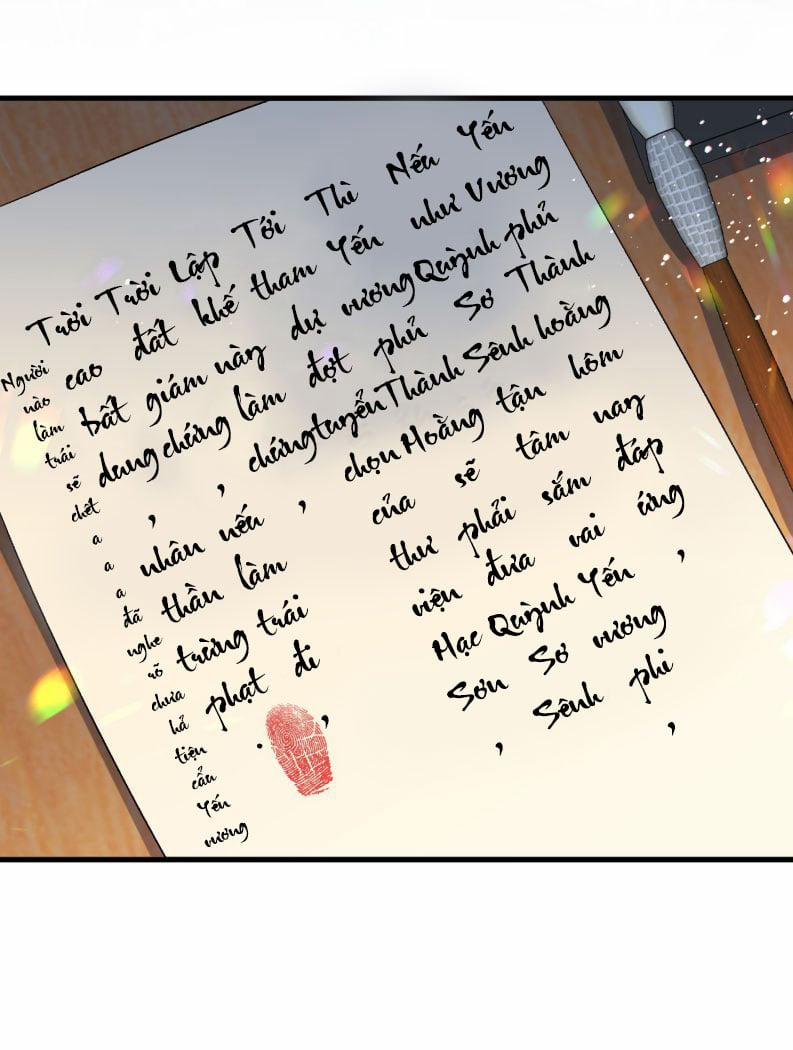 Yến Vương phủ Thành hoằng hôm nay đáp ứng ,
Nếu như Quỳnh Sơ Sênh tận tâm sắm vai Yến vương phi ,
Thì Yến vương phủ Thành Hoằng sẽ phải đưa Quỳnh Sơ Sênh
Tới tham dự đợt tuyển chọn của thư viện Hạc Sơn ,
Lập khế này làm chứng , nếu làm trái đi ,
Trời đất giám chứng , nhân thần trừng phạt .
Trời cao bất dung ,
Người nào làm trái sẽ chết a a a đã nghe rõ chưa hả tiện cẩu Yến vương